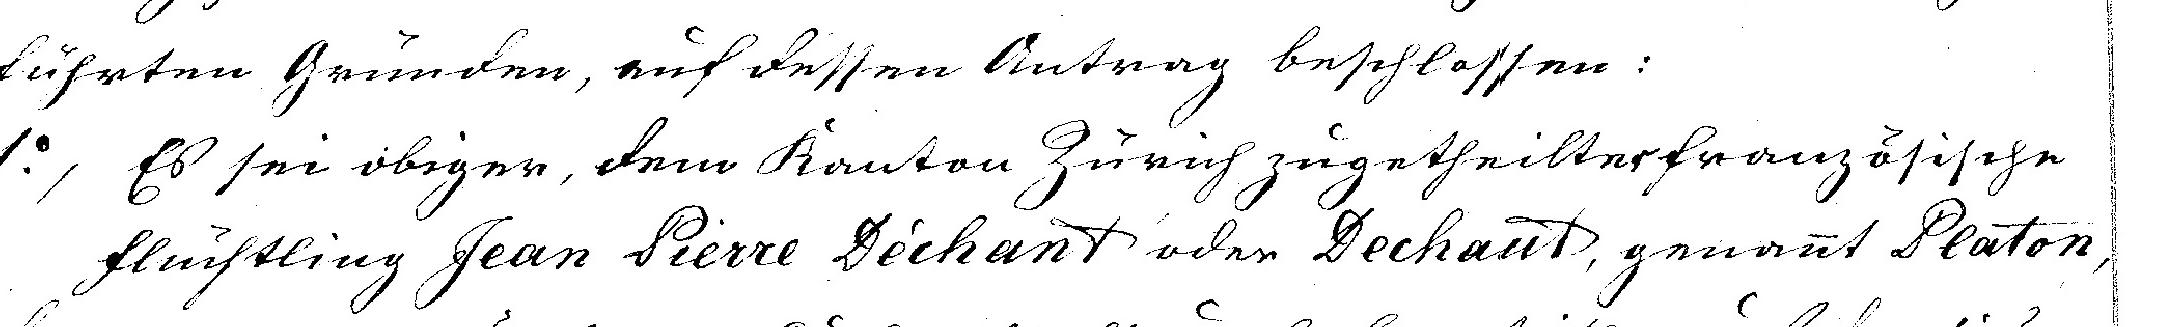 führten Gründen, auf dessen Antrag beschlossen:
1°, Es sei obiger, dem Kanton Zürich zugetheilter französische
Flüchtling Jean Pierre Déchant oder Dechaut, genannt Platon,